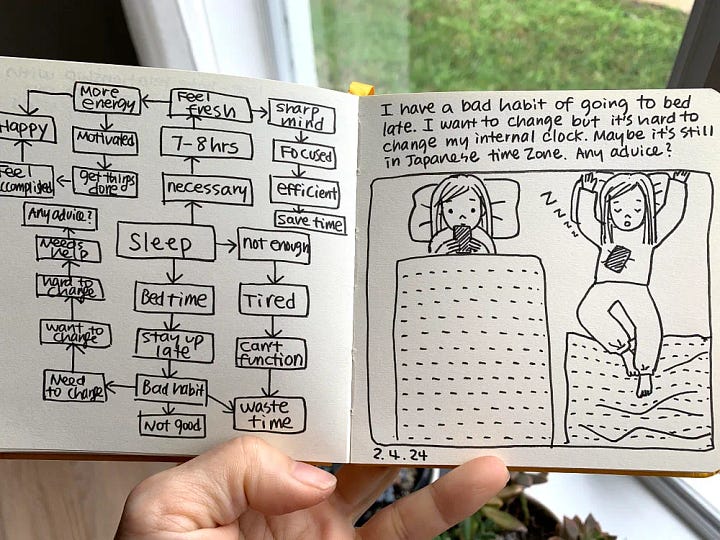 More
energy
Feel
fresh
sharp
mind
Happy
Motivated
7-8 hrs
Focused
Feel
accomplished
get things
done
necessary
efficient
save time
Any advice?
Needs
help
Sleep
not enough
hard to
change
Bedtime
Tired
want to
change
stay up
late
can't
function
Need
to change
Bad habit
waste
time
Not good
I have a bad habit of going to bed
late. I want to change but it's hard to
change my internal clock. Maybe it's still
in Japanese time zone. Any advice?
z z z z z
2.4.24